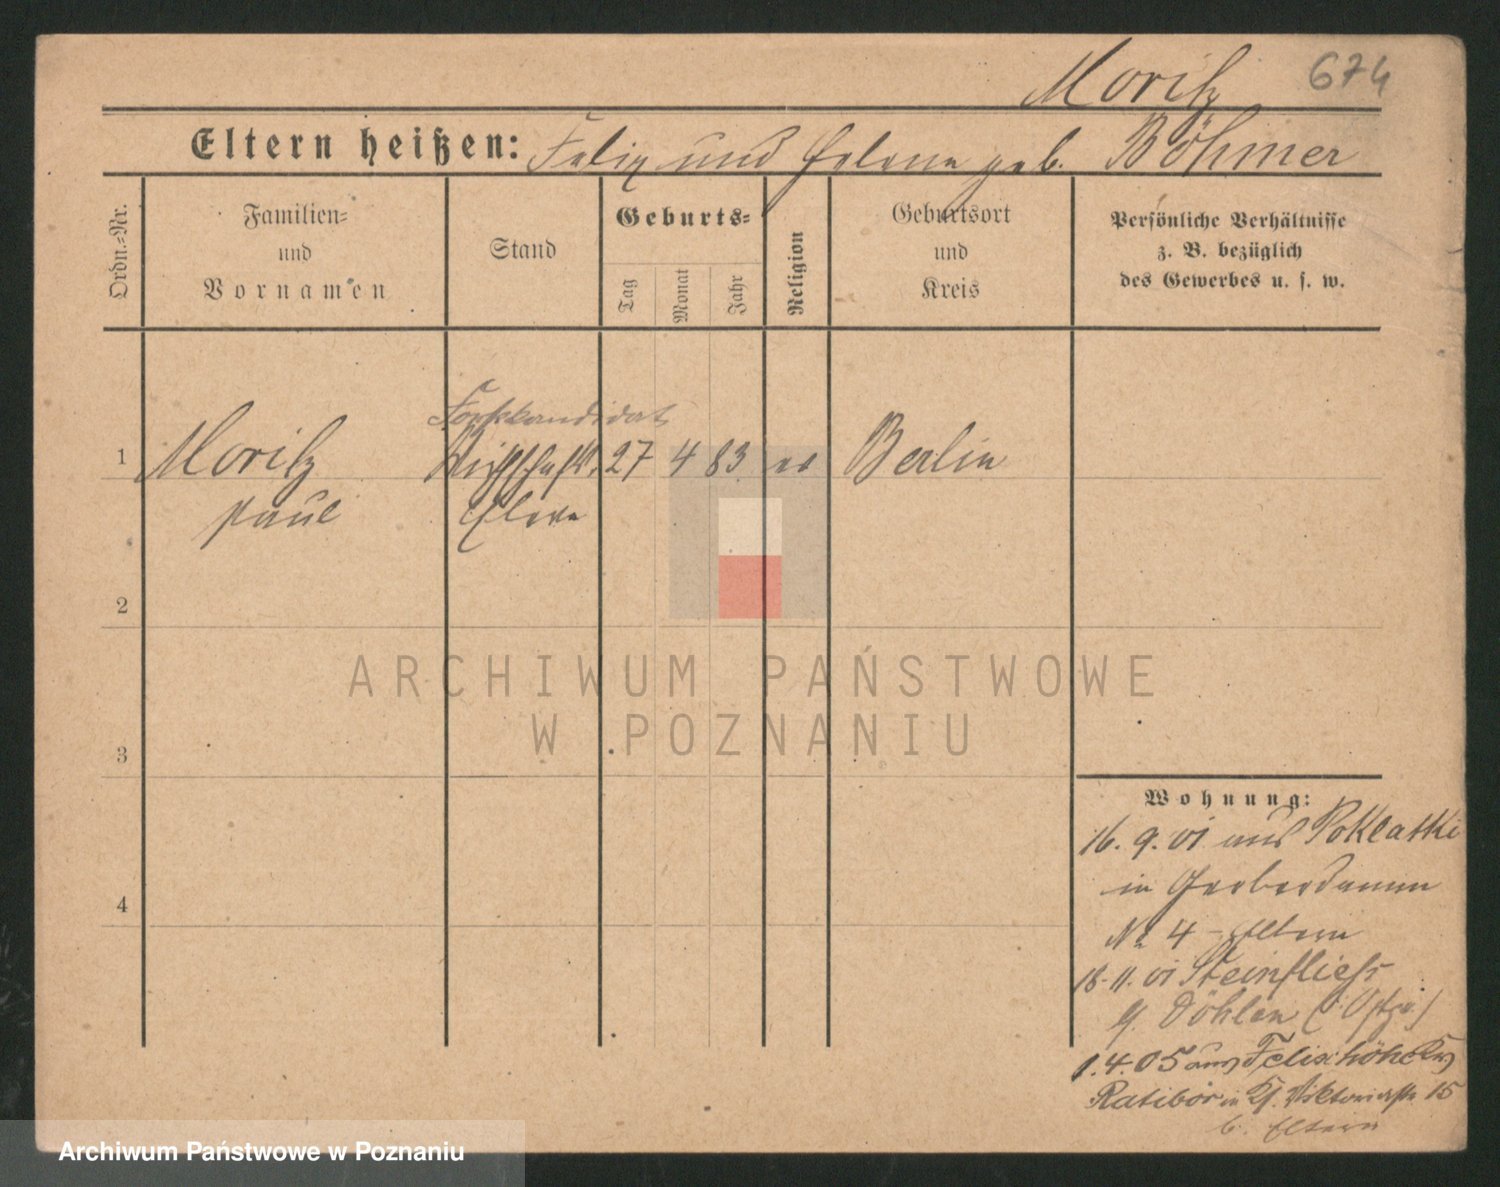 Moritz 674
Eltern heißen: Felix und Helene geb. Böhmer
Ordn.=Nr.
Familien=
und
Vornamen
Stand
Geburts=
Tag
Monat
Jahr
Religion
Geburtsort
und
Kreis
Persönliche Verhältnisse
z. B. bezüglich
des Gewerbes u. s. w.
Forstkandidat
1 Moritz Wirthschafts 27 4 83 ev Berlin
Paul Eleve
2
3
4
Wohnung:
16. 9. 01 aus Poklatki
in Gerberdamm
No 4 - Eltern
18. 11. 01 Steinfliess
b. Döhlen
1. 4. 05 aus Felixhöhe Krs
Ratibor in Viktoriastr 15
b. Eltern
ARCHIWUM PAŃSTWOWE
W POZNANIU
Archiwum Państwowe w Poznaniu